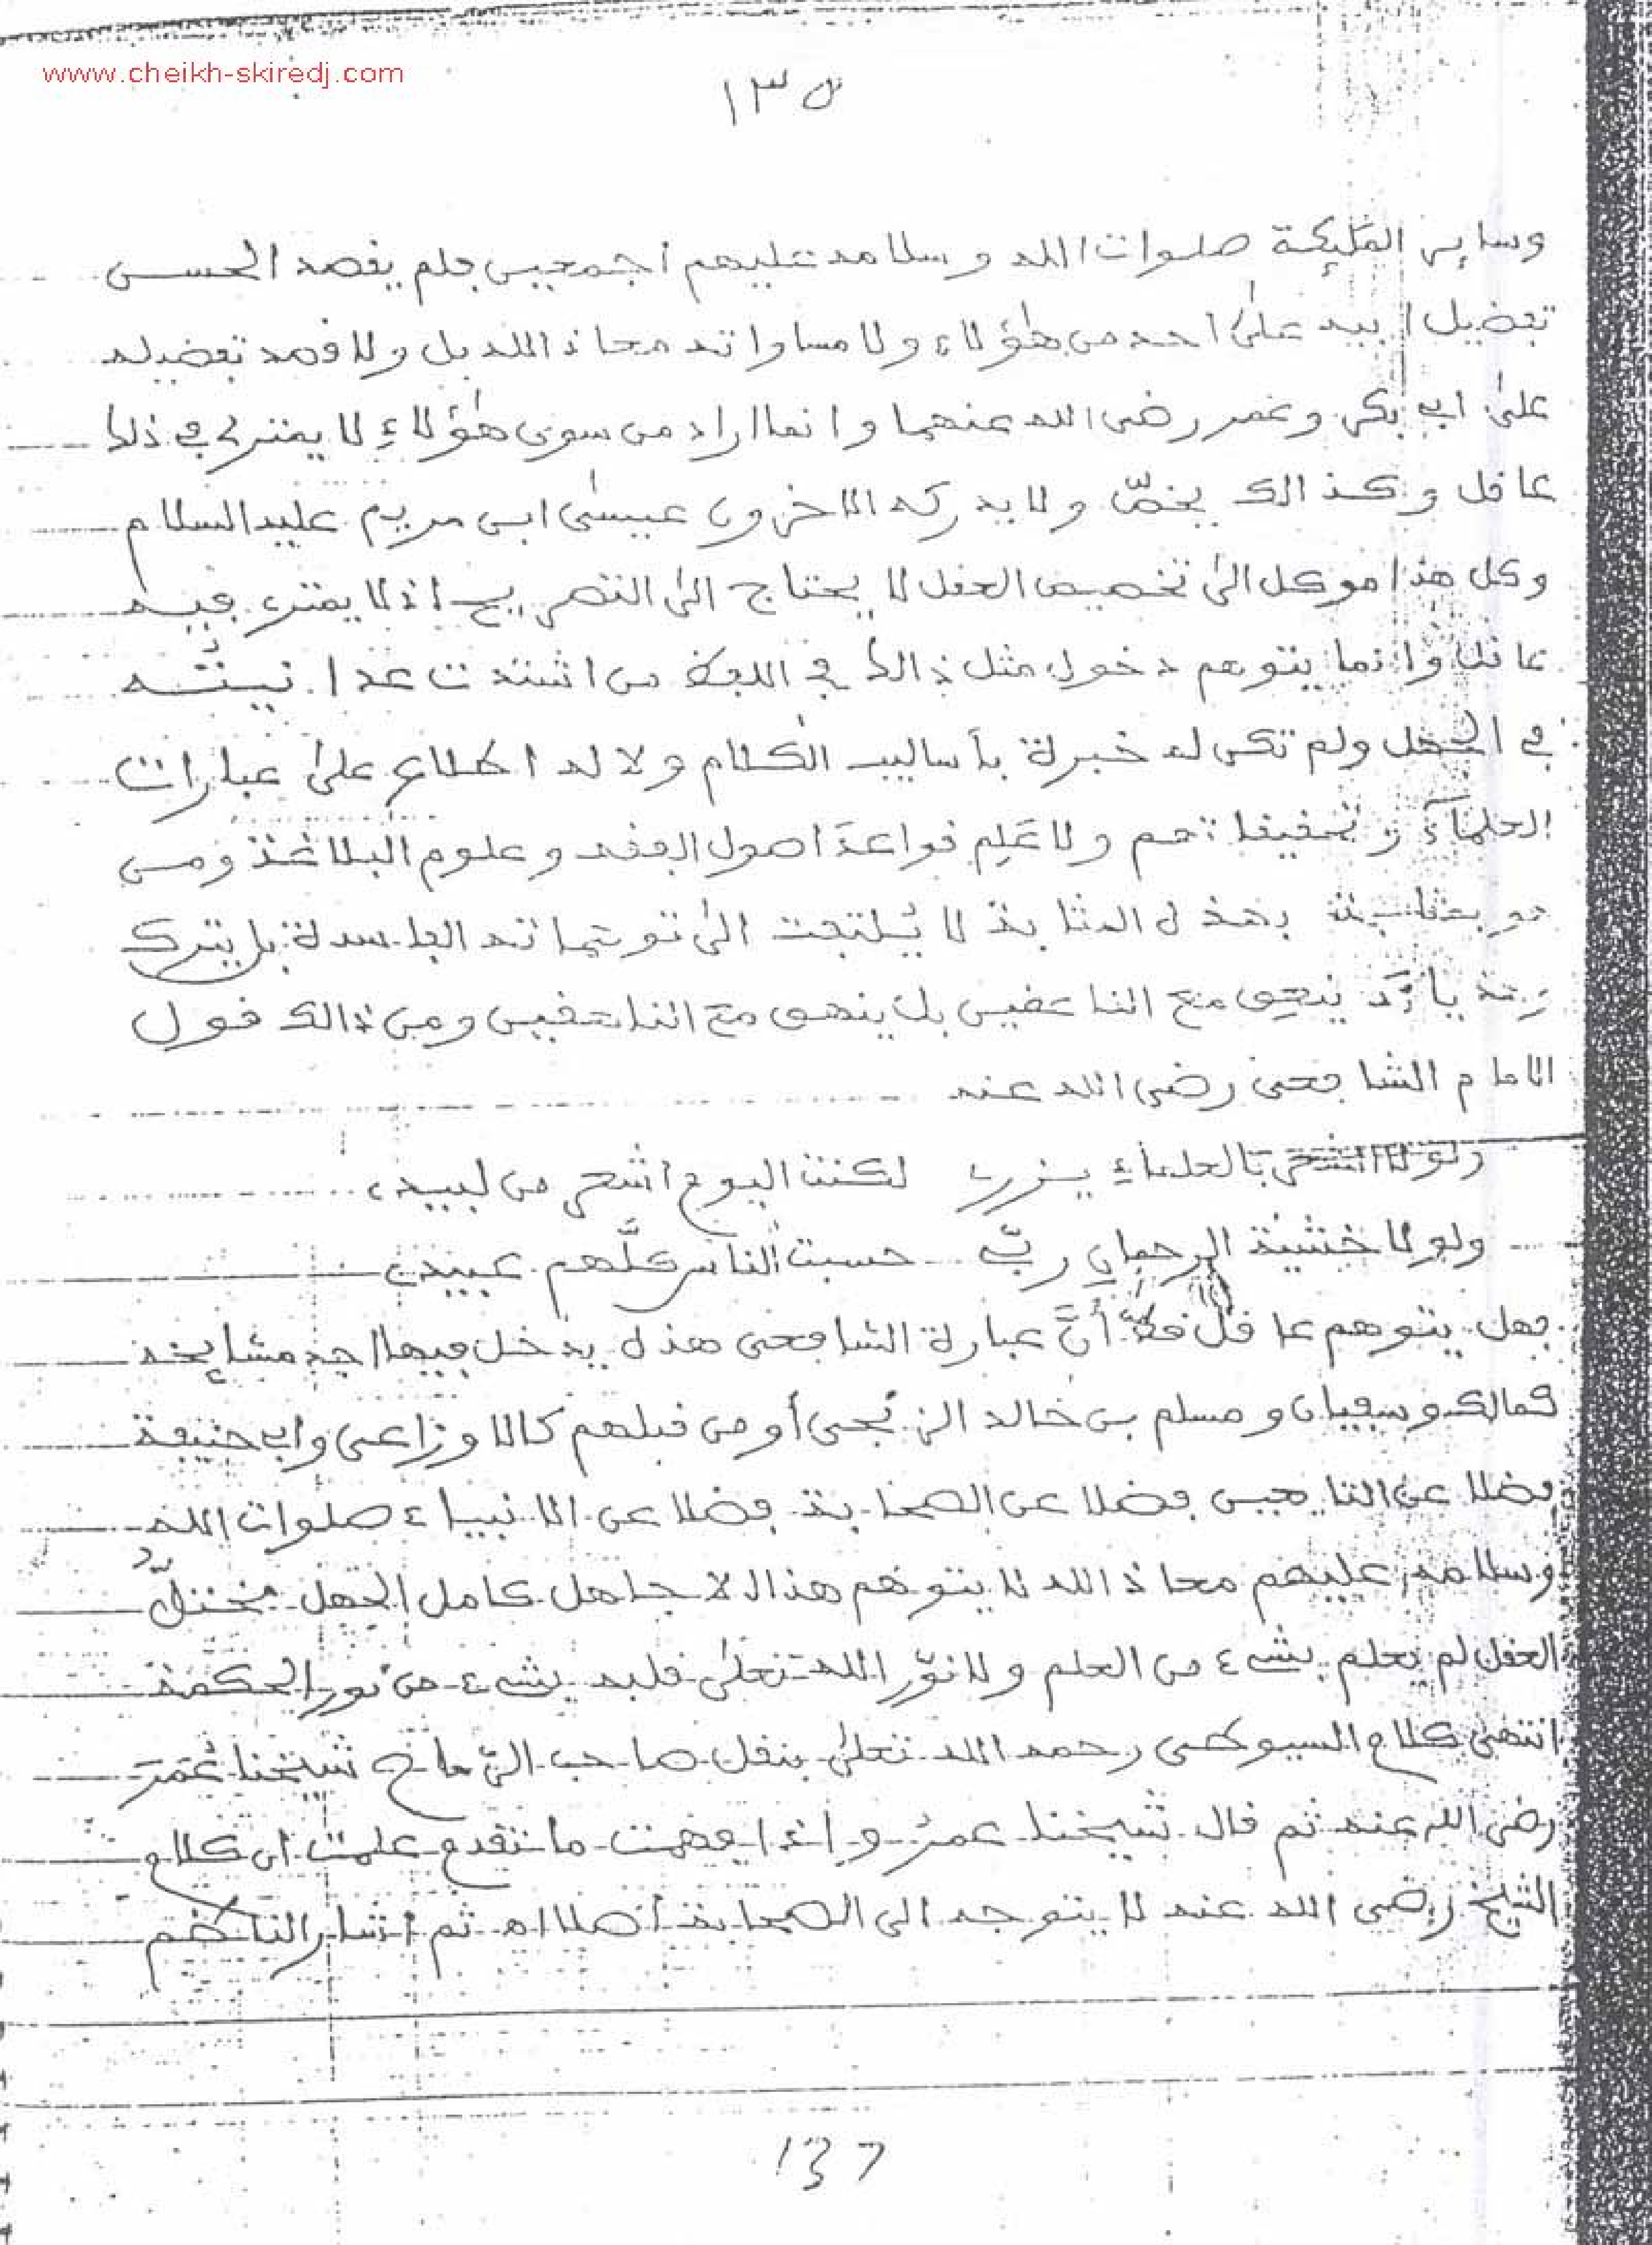 www.cheikh-skiredj.com
وساير الملئكة صلوات الله وسلامه عليهم أجمعين فلم يقصد الحسن
تفضيل ابيه على احد من هؤلاء ولا مساواته معاذ الله بل ولا قصد تفضيله
على ابي بكر وعمر رضي الله عنهما وانما اراد من سوى هؤلاء لا يمتري في ذلك
عاقل وكذالك يخصّ ولا يدركه الاخرون عيسى ابن مريم عليه السلام
وكل هذا موكل الى تخصيص العقل لا يحتاج الى التصريح اذ لا يمتري فيه
عاقل وانما يتوهم دخول مثل ذالك في اللفظ من اشتدت
في الجهل ولم تكن له خبرة بأساليب الكلام ولا له اطلاع على عبارات
العلماء ولا علم قواعد اصول الفقه وعلوم البلاغة ومن
هو بهذه المثابة لا يُلتفت الى توهماته الفاسدة بل يترك
ينعق مع الناعقين بل ينهق مع الناهقين ومن ذالك قول
الامام الشافعي رضي الله عنه
ولولا الشعر بالعلماء يزري لكنت اليوم اشعر من لبيد
ولولا خشية الرحمان ربّي حسبت الناس كلَّهم عبيدي
فهل يتوهم عاقل قطّ أنَّ عبارة الشافعي هذه يدخل فيها احد مشايخه
كمالك وسفيان ومسلم بن خالد الزنجي أو من قبلهم كالاوزاعي وابي حنيفة
فضلا عن التابعين فضلا عن الصحابة فضلا عن الانبياء صلوات الله
وسلامه عليهم معاذ الله لا يتوهم هذا الا جاهل كامل الجهل مختلّ
العقل لم يعلم بشيء من العلم ولا نوّر الله تعلى قلبه بشيء من نور الحكمة
انتهى كلام السيوطي رحمه الله تعلى بنقل صاحب الرّماح شيخنا عُمَر
رضي الله عنه ثم قال شيخنا عمر وإذا فهمت ما تقدم علمت ان كلام
الشيخ رضي الله عنه لا يتوجه الى الصحابة أصلا اه ثم اشار الناظم
137